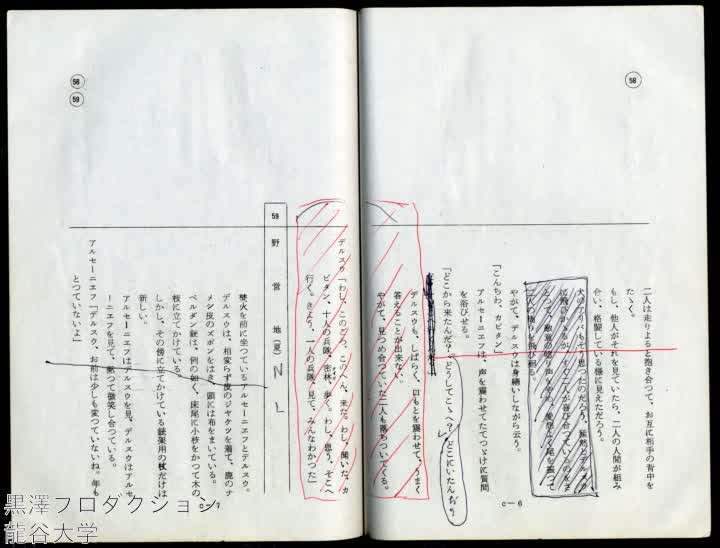 58
二人は走りよると抱き合つて、お互に相手の背中を
たゝく。
もし、他人がそれを見ていたら、二人の人間が組み
合い、格闘している様に見えただろう。
犬のアリパもそう思つたのだろう、猛然とデルスウ
に飛びかゝるが、すぐ二人が喜び合つているのをさ
とつて、敵意の唸り声をやめ、愛想よく尾を振つて
二人の廻りを飛び廻る。
やがて、デルスウは身繕いしながら云う。
「こんちわ、カピタン」
アルセーニエフは、声を震わせてたてつゞけに質問
を浴びせる。
「どこから来たんだ?どうしてこゝへ?どこにいたんだ?
デルスウも、しばらく、口もとを震わせて、うまく
答えることが出来ない。
やがて、見つめ合つていた二人も落ちついてくる。
c－6
58
59
デルスウ「わし、このごろ、このへん、来た。わし、聞いた、カ
ピタン、十人の兵隊、密林、歩く。わし、思う、そこへ
行く。きよう、一人の兵隊、見て、みんなわかつた」
59 野営地(夏) N L
焚火を前に坐つているアルセーニエフとデルスウ。
デルスウは、相変らず皮のジャケツを着て、鹿のナ
メシ皮のズボンをはき、頭には布をまいている。
ベルダン銃は、例の如く、床尾に小枝をかつて木の
枝に立てかけている。
しかし、その傍に立てかけている銃架用の杖だけは
新しい。
アルセーニエフはデルスウを見、デルスウはアルセ
ーニエフを見て、黙つて微笑し合つている。
アルセーニエフ「デルスウ、お前は少しも変つていないね。年も
とつていないよ」
c－7
黒澤プロダクション
龍谷大学